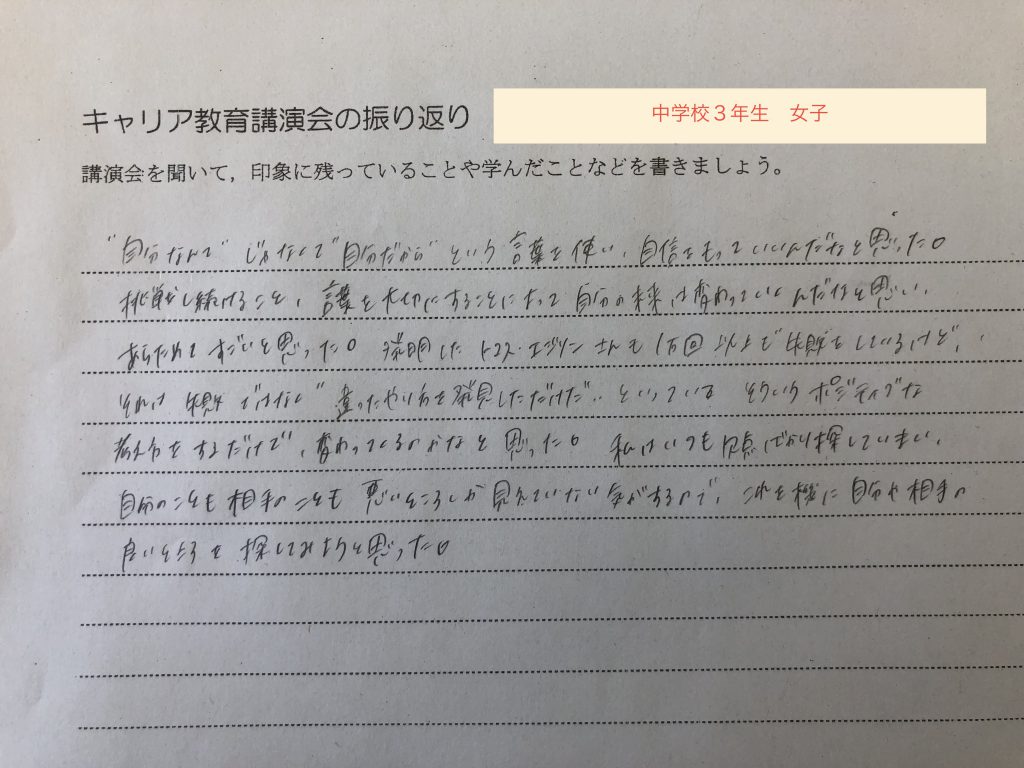 キャリア教育講演会の振り返り
中学校3年生 女子
講演会を聞いて,印象に残っていることや学んだことなどを書きましょう。
"自分なんて"じゃなくて"自分だから"という言葉を使い、自信をもっていいんだなと思った。
挑戦し続けること、言葉を大切にすることによって自分の未来は変わっていくんだなと思い、
あらためてすごいと思った。発明したトーマス・エジソンさんも1万回以上も失敗をしているけど、
それは失敗ではない"違ったやり方を発見しただけだ"といっている そういうポジティブな
考え方をするだけで、変わってくるのかなと思った。私はいつも欠点ばかり探してしまい、
自分のことも相手のことも悪いところしか見えていない気がするので、これを機に自分や相手の
良いところを探してみようと思った。